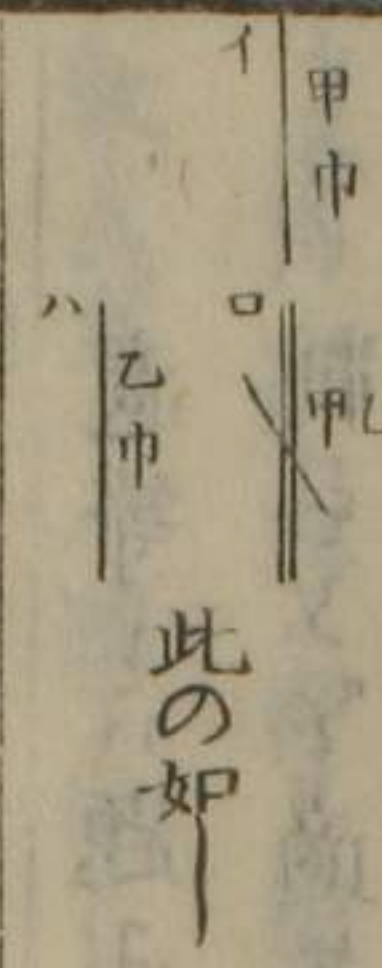 イ 甲巾
ロ 甲乙
ハ 乙巾
此の如し